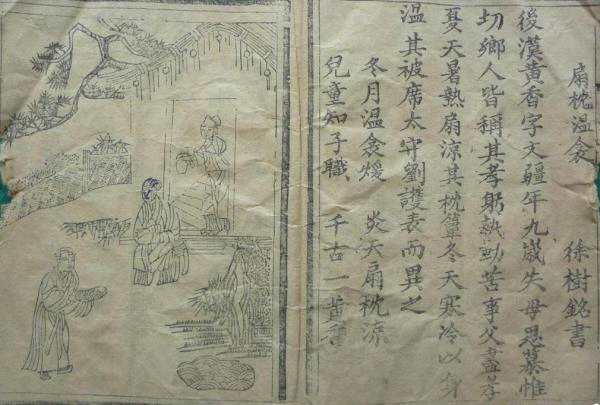 扇枕溫衾
徐樹銘書
後漢黃香字文疆年九歲失母思慕惟
切鄉人皆稱其孝躬執勤苦事父盡孝
夏天暑熱扇涼其枕簟冬天寒冷以身
溫其被席太守劉護表而異之
冬月溫衾煖 炎天扇枕涼
兒童知子職 千古一黃香